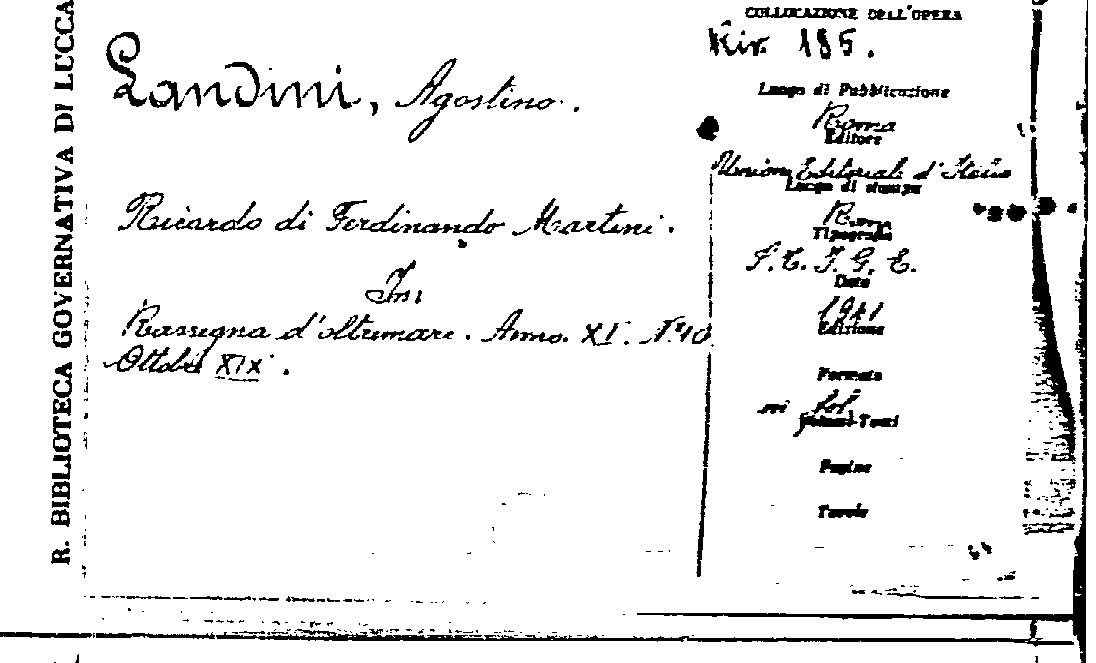 R. BIBLIOTECA GOVERNATIVA DI LUCCA
Landini, Agostino.
Ricordo di Ferdinando Martini.
In:
Rassegna d'oltremare. Anno. XI. N.° 10
Ottobre XIX.
COLLOCAZIONE DELL'OPERA
Riv. 185.
Luogo di Pubblicazione
Roma
Editore
Unione Editoriale d'Italia
Luogo di stampa
Roma
Tipografia
S. T. I. G. E.
Data
1941
Edizione
Formato
in fol.
Volumi-Tomi
Pagine
Tavole